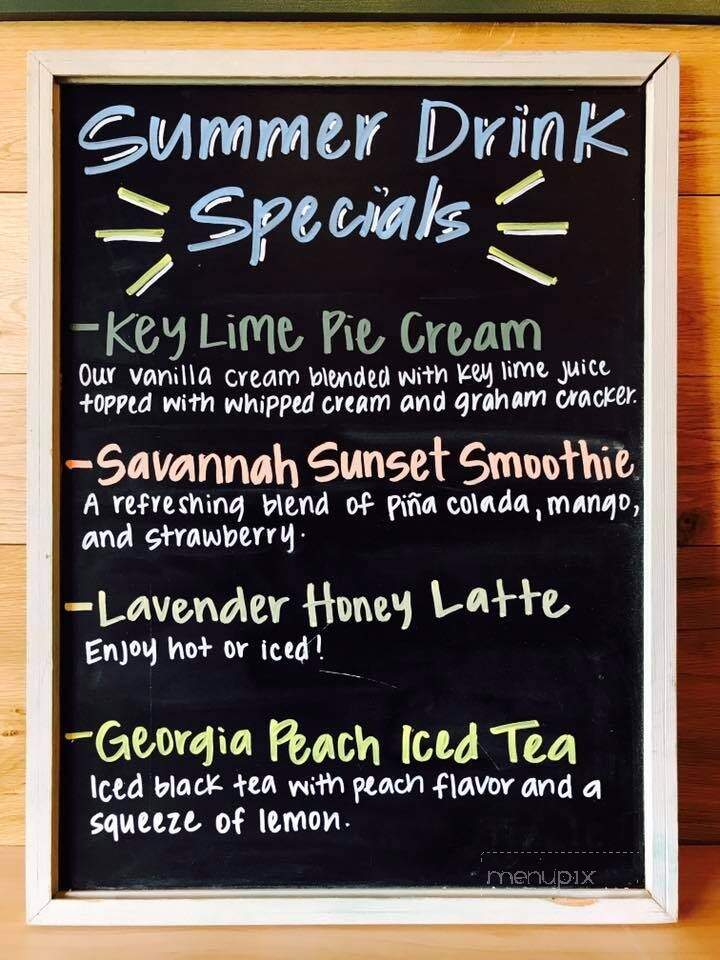 Summer Drink
Specials
-Key Lime Pie Cream
Our vanilla cream blended with key lime juice
topped with whipped cream and graham cracker.
-Savannah Sunset Smoothie
A refreshing blend of piña colada, mango,
and strawberry.
-Lavender Honey Latte
Enjoy hot or iced!
-Georgia Peach Iced Tea
Iced black tea with peach flavor and a
squeeze of lemon.
menupix